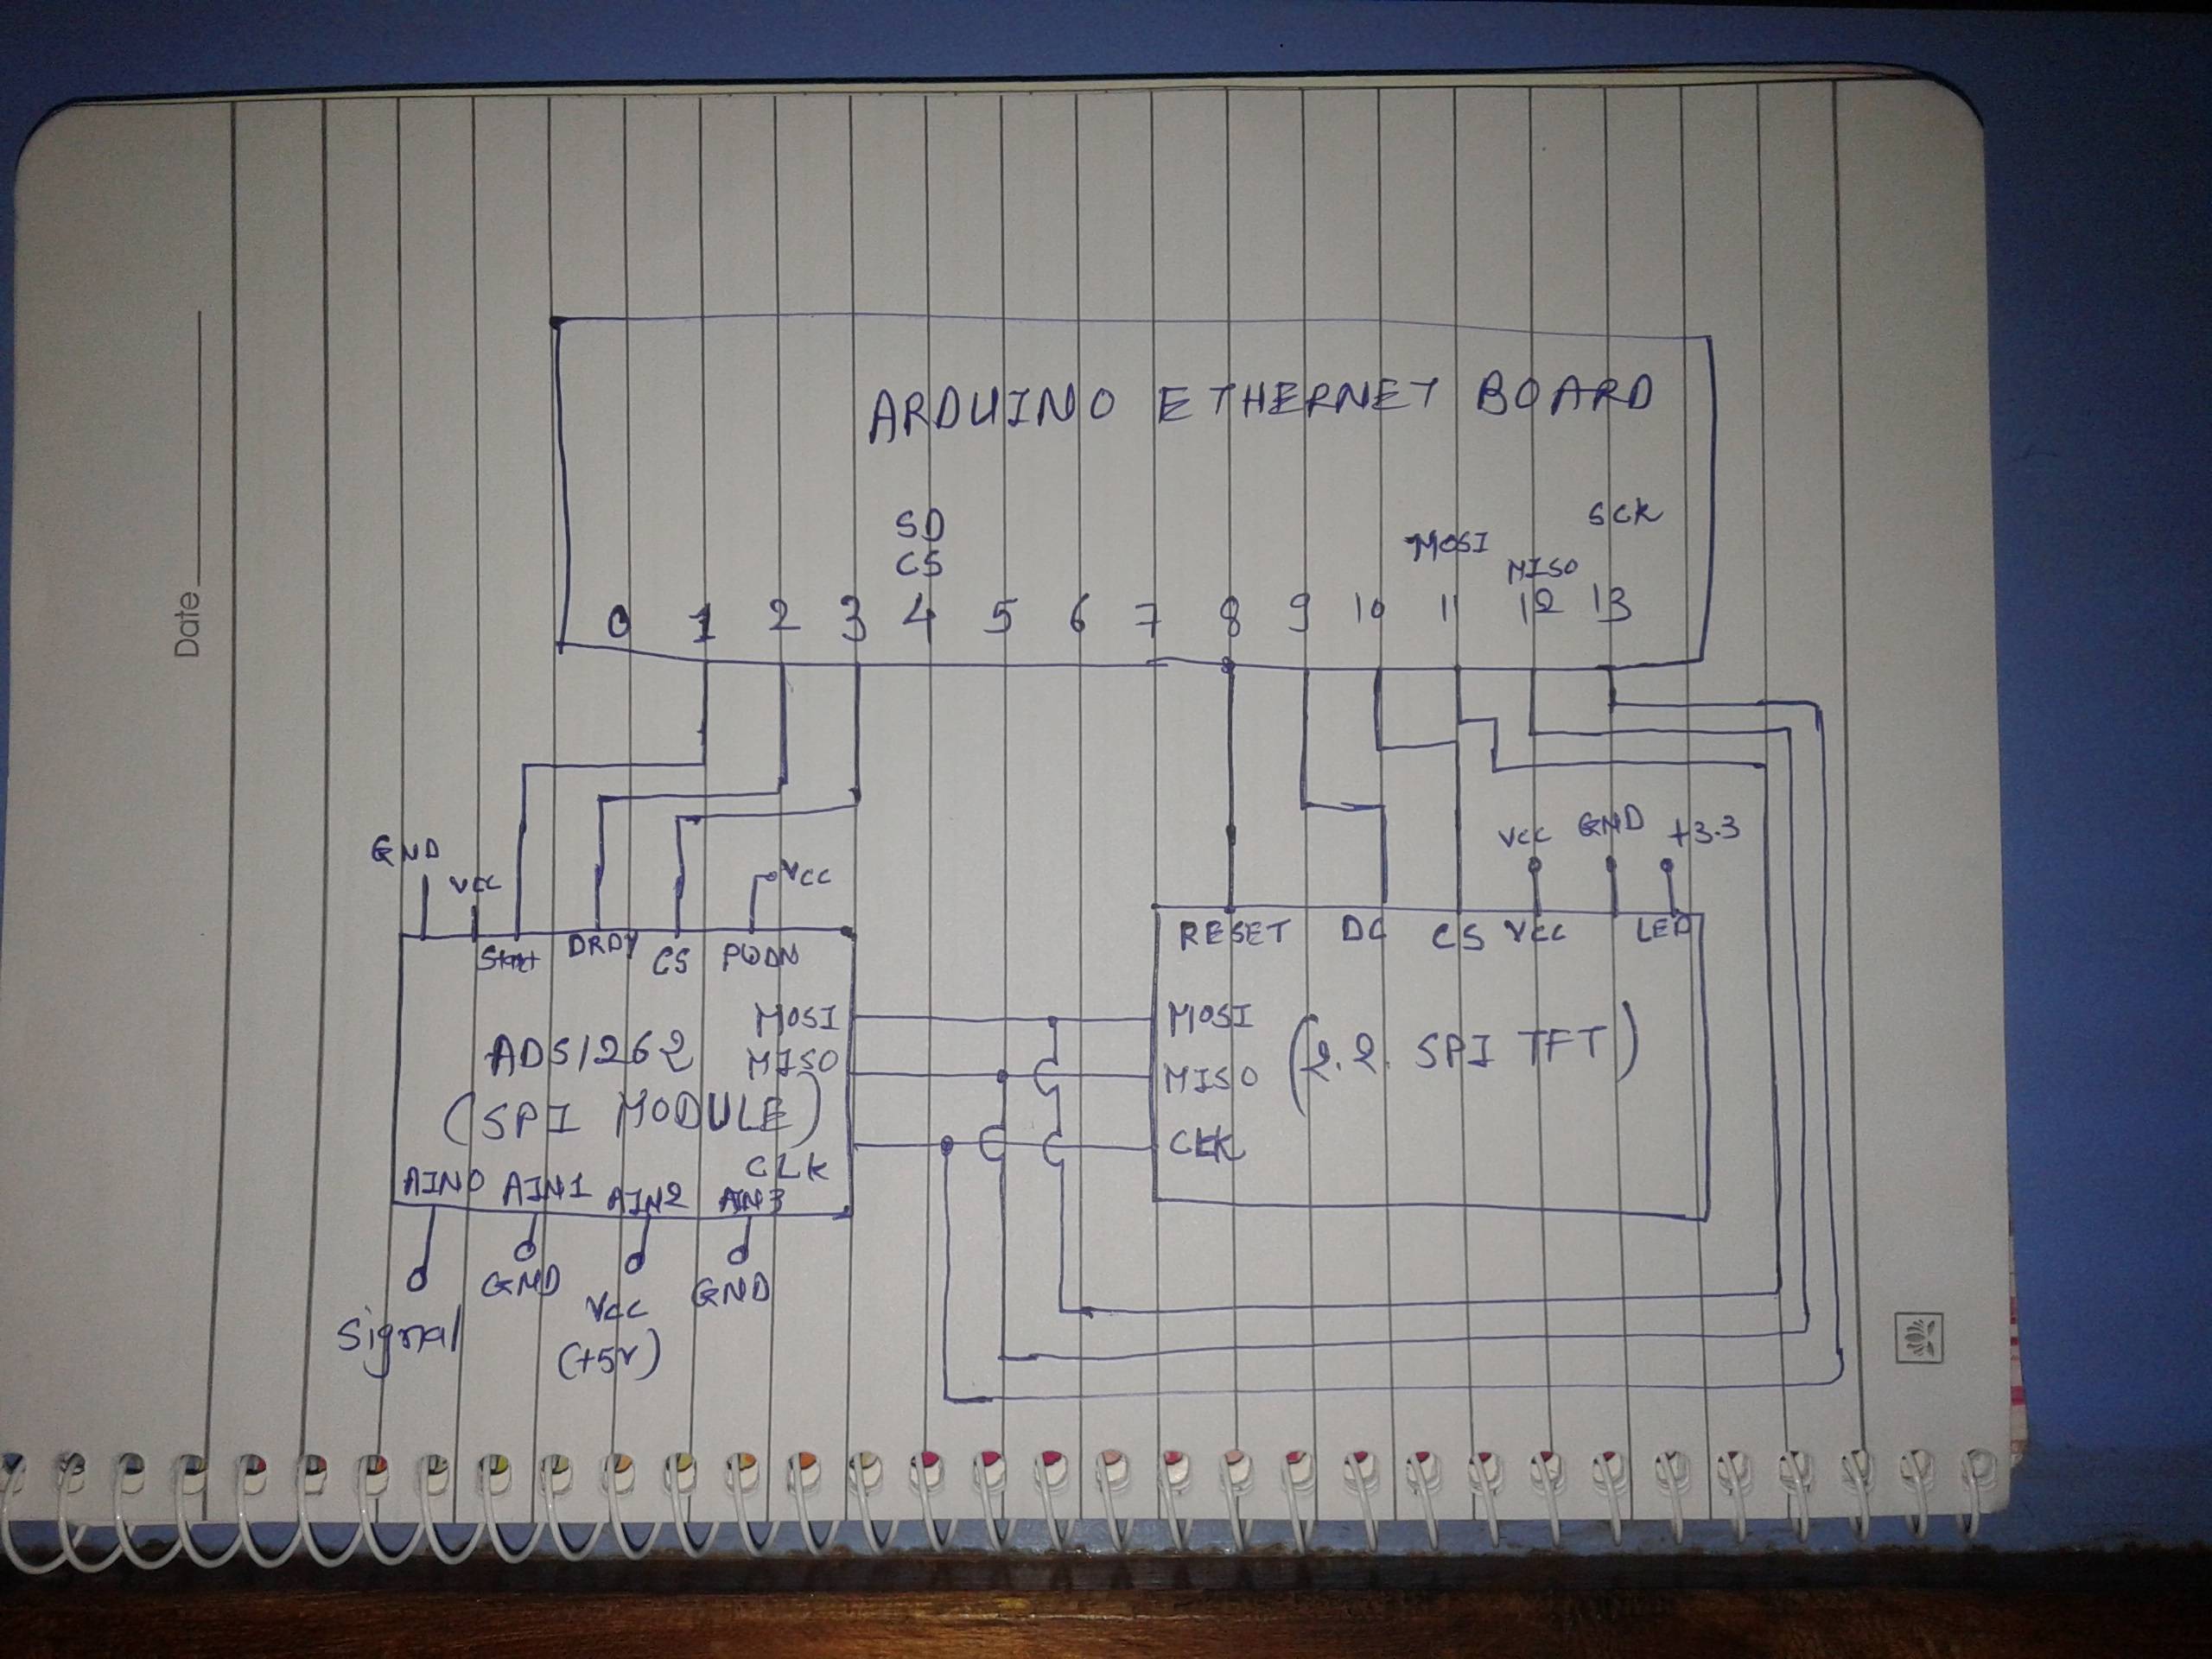 Date
ARDUINO ETHERNET BOARD
SD
CS
MOSI
MISO
SCK
0 1 2 3 4 5 6 7 8 9 10 11 12 13
GND
VCC
VCC
VCC
GND
+3.3
Start DRDY CS PWDN
RESET DC CS VCC LED
MOSI
MISO
CLK
ADS1262
(SPI MODULE)
MOSI
MISO
CLK
(2.2. SPI TFT)
AIN0 AIN1 AIN2 AIN3
Signal
GND
VCC
(+5V)
GND